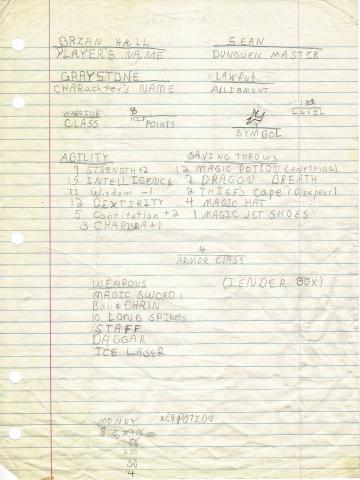 BRIAN HALL SEAN
PLAYER'S NAME DUNGUEN MASTER
GRAYSTONE LAWFUL
CHARACHTER'S NAME ALLIGMENT
WARRIOR 8 1st
CLASS HIT POINTS LEVEL
SYMBOL
ABILITY SAVING THROWS
7 STRENGTH +2 12 MAGIC POTION (ANYTHING)
15 INTELLIGENCE 7 DRAGON BREATH
11 WISDOM -1 2 THIEF'S CAPE (Disapear)
12 DEXTIRITY 4 MAGIC HAT
5 Contitution +2 1 MAGIC JET SHOES
3 CHARISMA +1
4
ARMOR CLASS
WEAPONS (TENDER BOX)
MAGIC SWORD 1
Ball & CHAIN
10 LONG SPIKES
STAFF
DAGGAR
ICE LASER
MONEY POTION
50
200
50
4